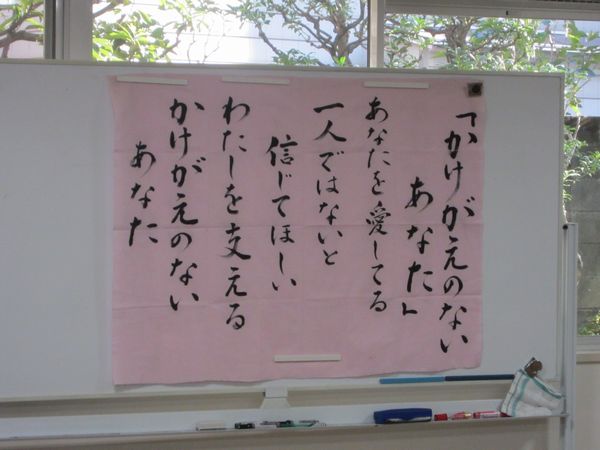 「かけがえのない
あなた」
あなたを愛してる
一人ではないと
信じてほしい
わたしを支える
かけがえのない
あなた